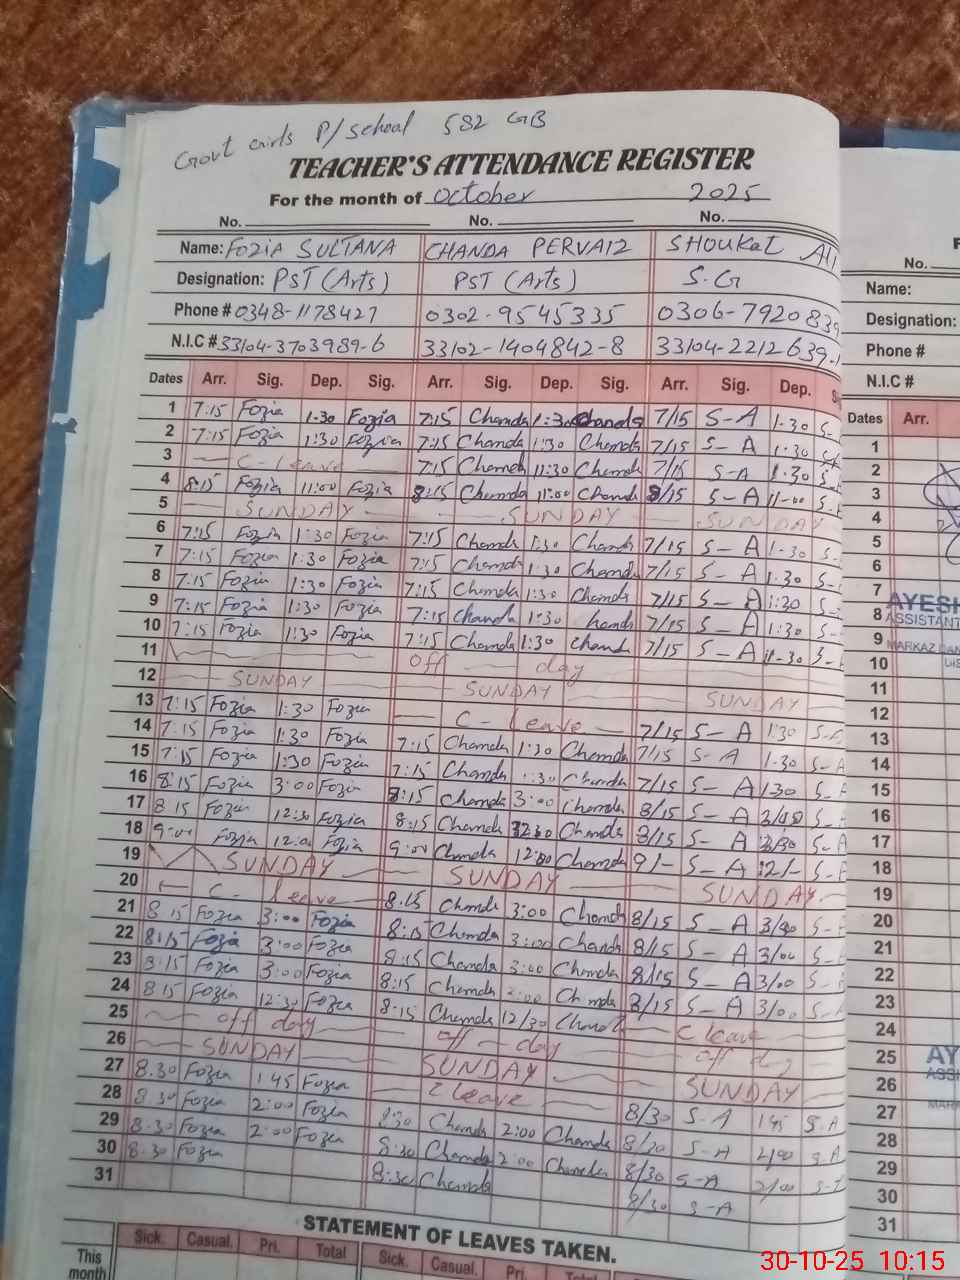 Govt Girls P/School 582 GB
TEACHER'S ATTENDANCE REGISTER
For the month of October 2025
No. No. No.
Name: FOZIA SULTANA CHANDA PERVAIZ SHOUKAT Ali
Designation: PST (Arts) PST (Arts) S.G
Phone # 0348-1178427 0302-9545335 0306-7920839
N.I.C # 33104-3703989-6 33102-1404842-8 33104-2212639-
Dates Arr. Sig. Dep. Sig. Arr. Sig. Dep. Sig. Arr. Sig. Dep.
1 7:15 Fozia 1-30 Fozia 7:15 Chanda 1:30 Chanda 7/15 S-A 1-30 S-
2 7:15 Fozia 1:30 Fozia 7:15 Chanda 1:30 Chanda 7/15 S-A 1:30
3 C-Leave 7:15 Chanda 1:30 Chanda 7/15 S-A 1-30 S-
4 8:15 Fozia 11:00 Fozia 8:15 Chanda 11:00 Chanda 8/15 S-A 11-00 S-
5 SUNDAY SUNDAY SUNDAY
6 7:15 Fozia 1:30 Fozia 7:15 Chanda 1:30 Chanda 7/15 S-A 1-30 S-
7 7:15 Fozia 1:30 Fozia 7:15 Chanda 1:30 Chanda 7/15 S-A 1-30 S-
8 7:15 Fozia 1:30 Fozia 7:15 Chanda 1:30 Chanda 7/15 S-A 1:30 S-
9 7:15 Fozia 1:30 Fozia 7:15 Chanda 1:30 7/15 S-A 1:30 S-
10 7:15 Fozia 1:30 Fozia 7:15 Chanda 1:30 Chand 7/15 S-A 1-30 S-
11 off day
12 SUNDAY SUNDAY SUNDAY
13 7:15 Fozia 1:30 Fozia C-Leave 7/15 S-A 1:30 S-A
14 7:15 Fozia 1:30 Fozia 7:15 Chanda 1:30 Chanda 7/15 S-A 1-30 S-A
15 7:15 Fozia 1:30 Fozia 7:15 Chanda 1:30 Chanda 7/15 S-A 1-30 S-A
16 8:15 Fozia 3:00 Fozia 8:15 Chanda 3:00 Chanda 8/15 S-A S-A
17 8 15 Fozia 12:30 Fozia 8:15 Chanda Chanda 8/15 S-A S-A
18 9:00 Fozia 12:00 Fozia 9:00 Chanda 12:00 Chanda 9/- S-A 12/- S-A
19 SUNDAY SUNDAY SUNDAY
20 C-leave 8:15 Chanda 3:00 Chanda 8/15 S-A S-
21 8 15 Fozia 3:00 Fozia 8:15 Chanda 3:00 Chanda 8/15 S-A 3/00 S-
22 8:15 Fozia 3:00 Fozia 8:15 Chanda 3:00 Chanda 8/15 S-A 3/00 S-
23 8:15 Fozia 3:00 Fozia 8:15 Chanda Chanda 8/15 S-A 3/00 S-A
24 8 15 Fozia 12:30 Fozia 8:15 Chanda 12/30 Chanda C leave
25 off day off day off
26 SUNDAY SUNDAY SUNDAY
27 8.30 Fozia 1 45 Fozia C leave 8/30 S-A 1 45 S-A
28 8 30 Fozia 2:00 Fozia 8:30 Chanda 2:00 Chanda 8/30 S-A 2/00 S-A
29 8.30 Fozia 2:00 Fozia 8:30 Chanda 2:00 Chanda 8/30 S-A 2/00
30 8.30 Fozia 8:30 Chanda 8/30 S-A
31
STATEMENT OF LEAVES TAKEN.
This month Sick. Casual. Pri. Total Sick. Casual. Pri. Total
No.
Name:
Designation:
Phone #
N.I.C #
Dates Arr.
1
2
3
4
5
6
7
8
AYESH
ASSISTANT
9
10
11
12
13
14
15
16
17
18
19
20
21
22
23
24
25
AY
26
27
28
29
30
31
30-10-25 10:15